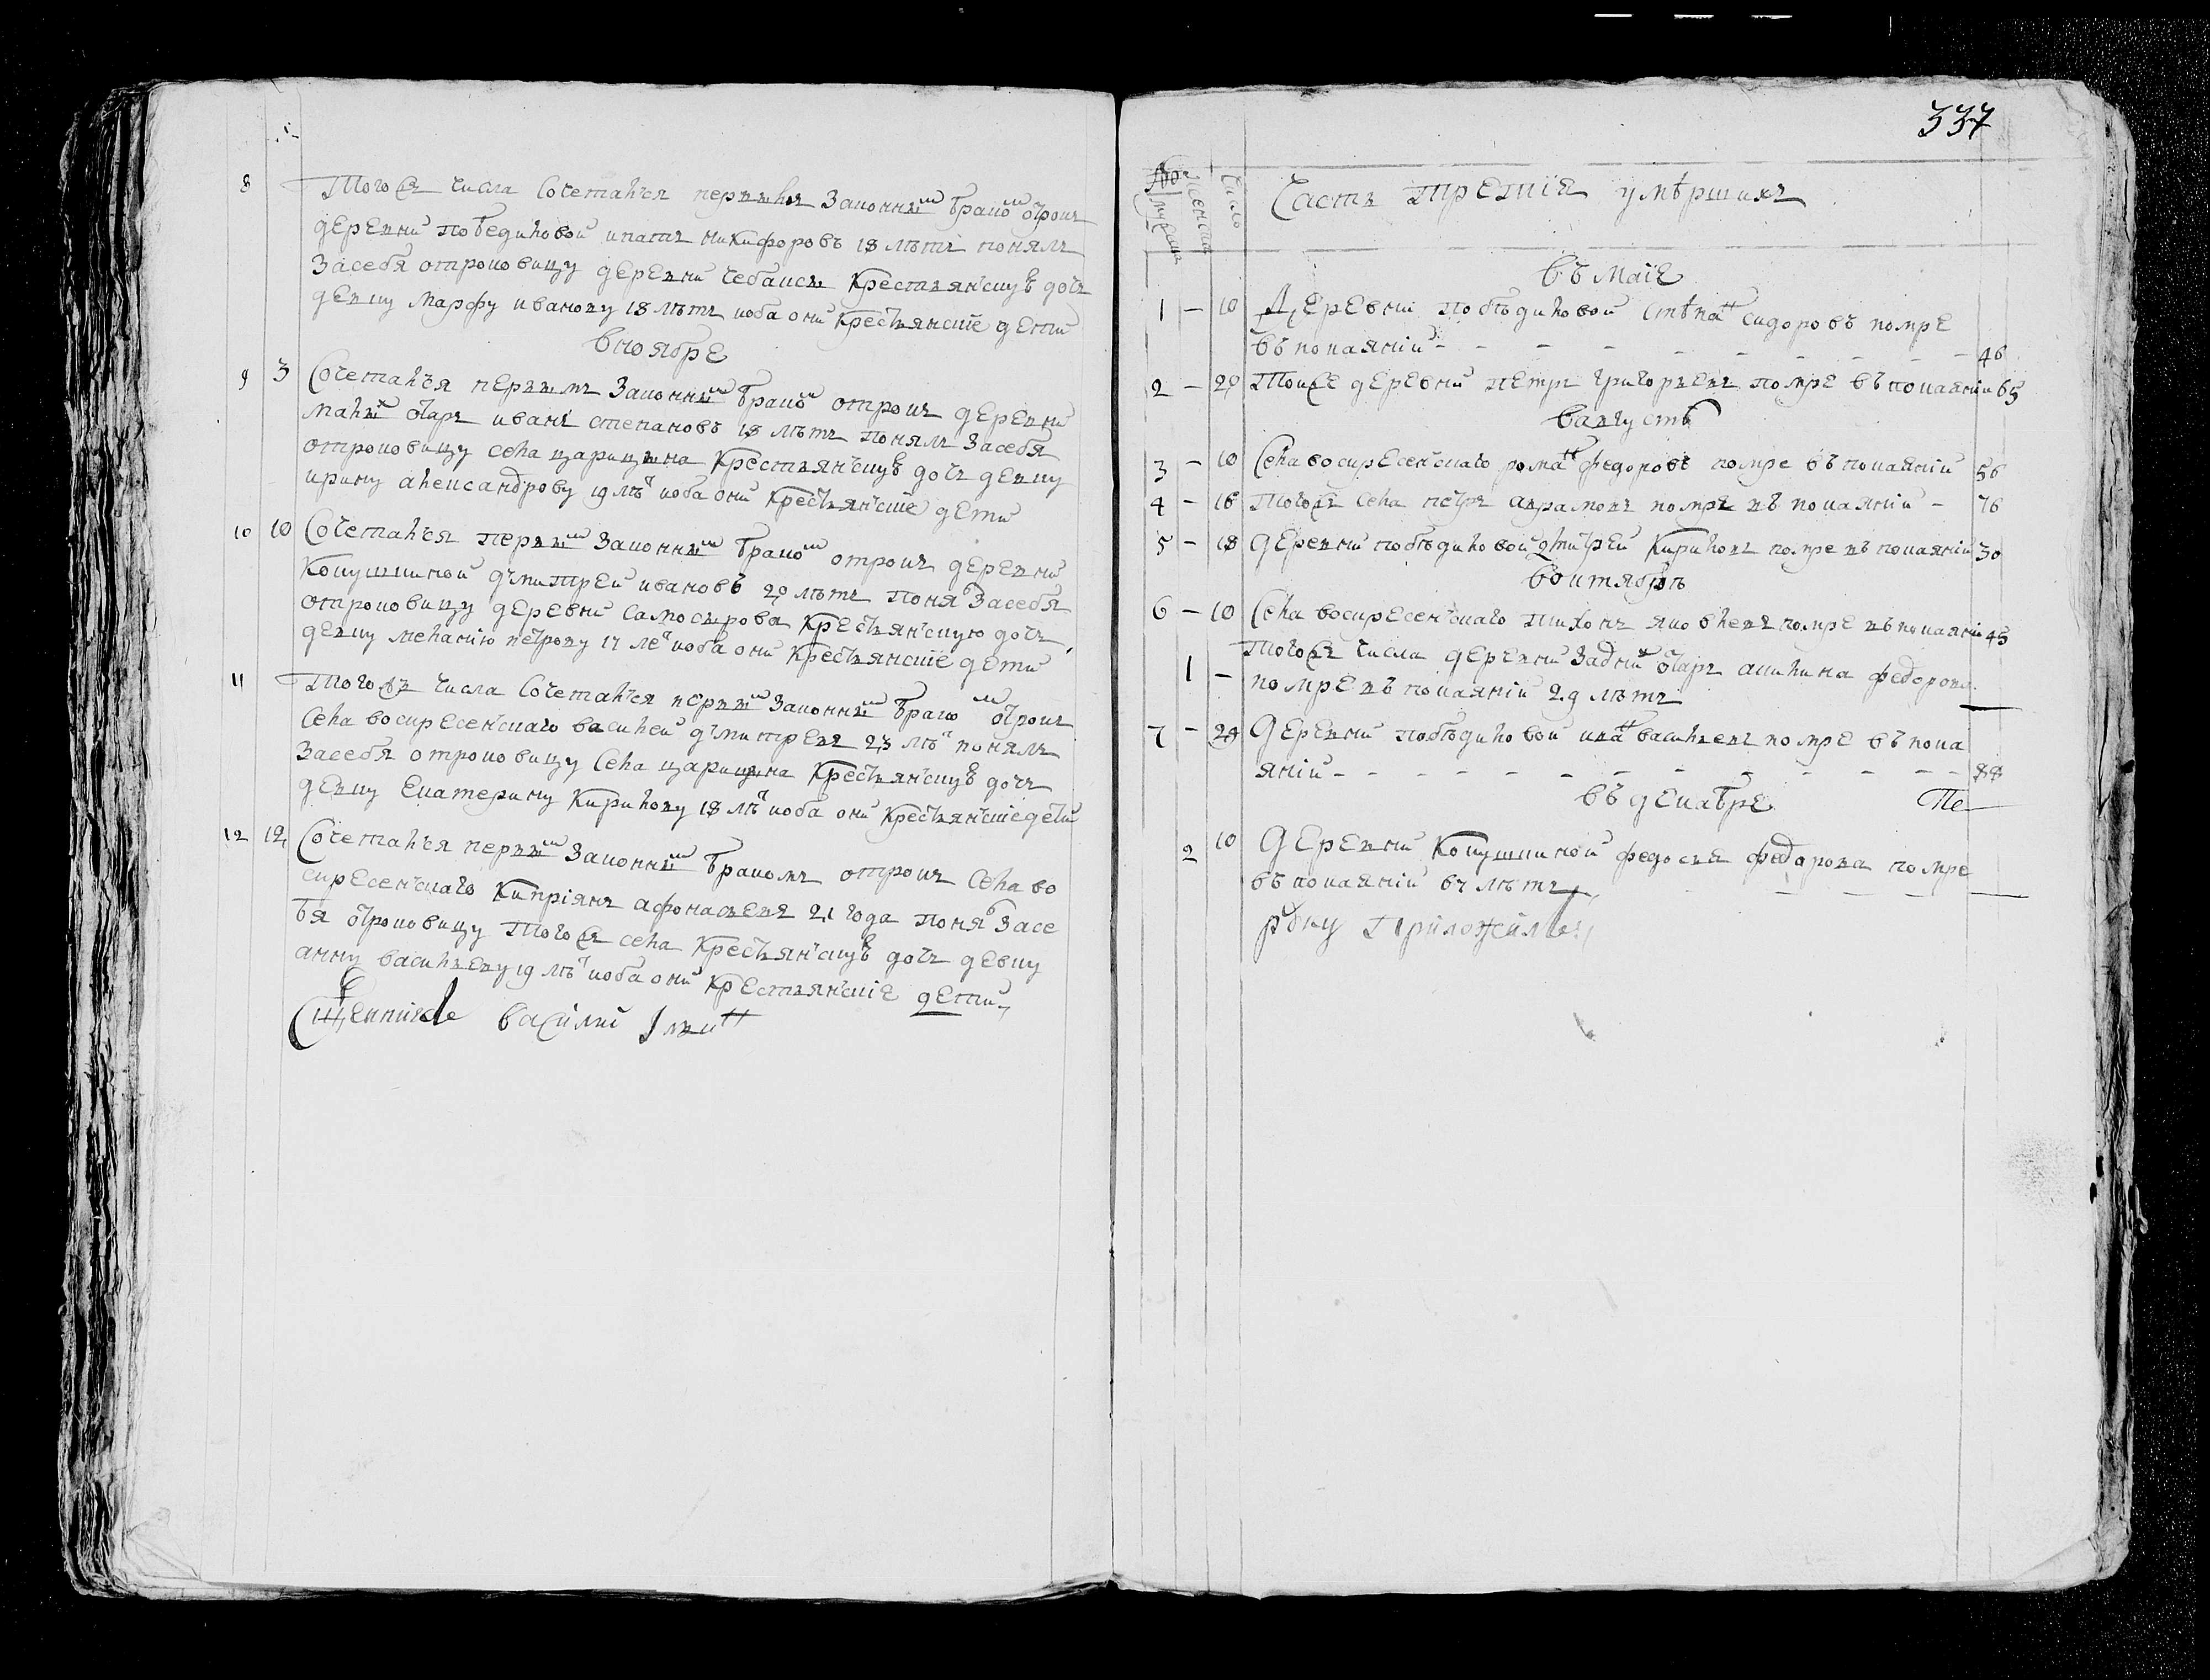 8 Тогож числа сочетался первымъ законнымъ бракомъ отрокъ
деревни победиловой ипатъ никифоровъ 18 лѣтъ понялъ
засебя отроковицу деревни чебаксы крестьянскую дочь
девицу Марфу иванову 18 лѣтъ иоба они крестьянские дети
в ноябре
9 3 Сочетался первымъ законнымъ бракомъ отрокъ деревни
малых отаръ иванъ степановъ 18 лѣтъ понялъ засебя
отроковицу села царицына крестьянскую дочь девицу
ирину александрову 19 лѣтъ иоба они крестьянские дети
10 10 Сочетался первымъ законнымъ бракомъ отрокъ деревни
Кокушкиной дмитрей ивановъ 20 лѣтъ понялъ засебя
отроковицу деревни самосырова крестьянскую дочь
девицу меланию петрову 17 летъ иоба они крестьянские дети
11 Тогожъ числа сочетался первымъ законнымъ бракомъ отрокъ
села воскресенскаго василей дмитревъ 23 лѣтъ понялъ
засебя отроковицу села царицына крестьянскую дочь
девицу екатерину Кирилову 18 лѣтъ иоба они крестьянские дети
12 12 Сочетался первымъ законнымъ бракомъ отрокъ села во
скресенскаго Киприянъ афонасьевъ 21 года понялъ засе
бя отроковицу тогожъ села крестьянскую дочь девицу
анну васильеву 19 лѣтъ иоба они крестьянскіе дети
Священникъ василий
337
число
Часть третия умѣршихъ
въ маіе
1 – 10 Деревни побѣдиловой степанъ сидоровъ помре
въ покаяніи 46
2 – 20 Тойже деревни петръ григорьевъ помре въ покаяніи 65
в августѣ
3 – 10 Села воскресенскаго романъ федоровъ помре въ покаяніи 56
4 – 16 Тогожъ села петръ аврамовъ помре въ покаяніи – 76
5 – 18 деревни побѣдиловой дмитрей Кириловъ помре въ покаяніи 30
в октябрѣ
6 – 10 Села воскресенскаго тихонъ яковлевъ помре въ покаяніи 45
Тогожъ числа деревни задних отаръ акилина федорова
1 – помре въ покаяніи 29 лѣтъ
7 – 24 Деревни побѣдиловой ипатъ васильевъ помре въ пока
яніи 88
въ декабре
2 10 Деревни Кокушкиной федосья федорова помре
въ покаяніи 67 лѣтъ
руку приложилъ